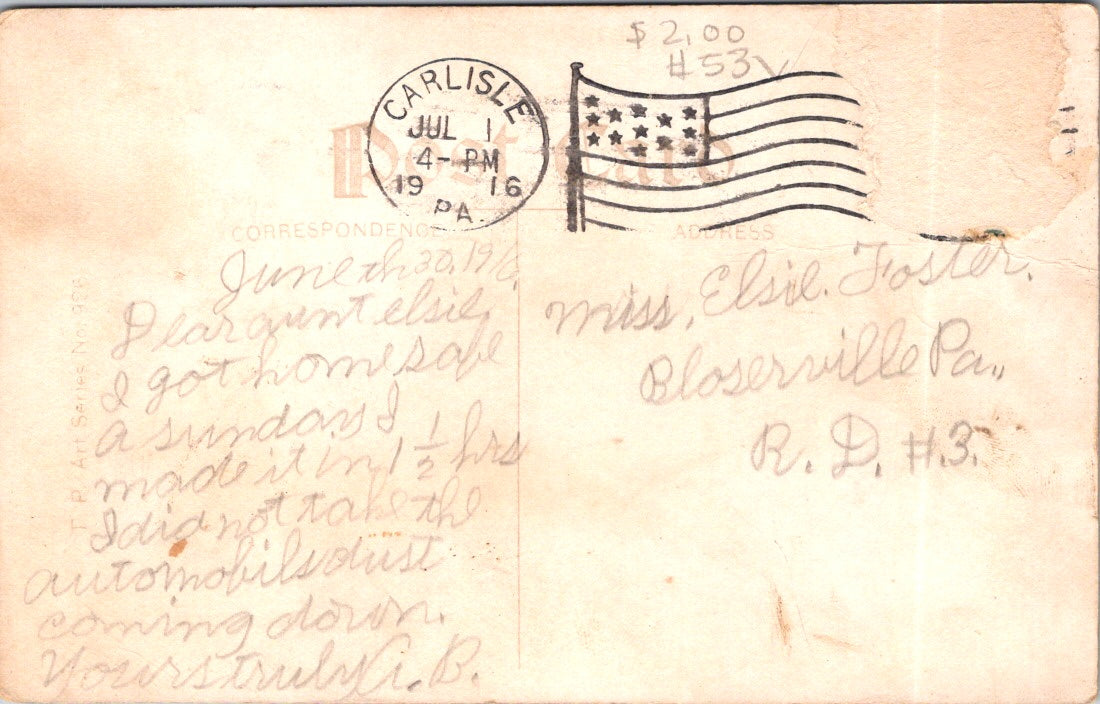 $2.00
#53
CARLISLE
JUL 1
4-PM
1916
PA.
Post Card
CORRESPONDENCE
ADDRESS
June th 30, 1916
Dear aunt elsie,
I got home safe
a sunday I
made it in 1 1/2 hrs
I did not take the
automobils dust
coming down.
Yours truly A. B.
Miss, Elsie. Foster.
Bloserville Pa,,
R. D. #.3.
T. P. Art Series No. 926